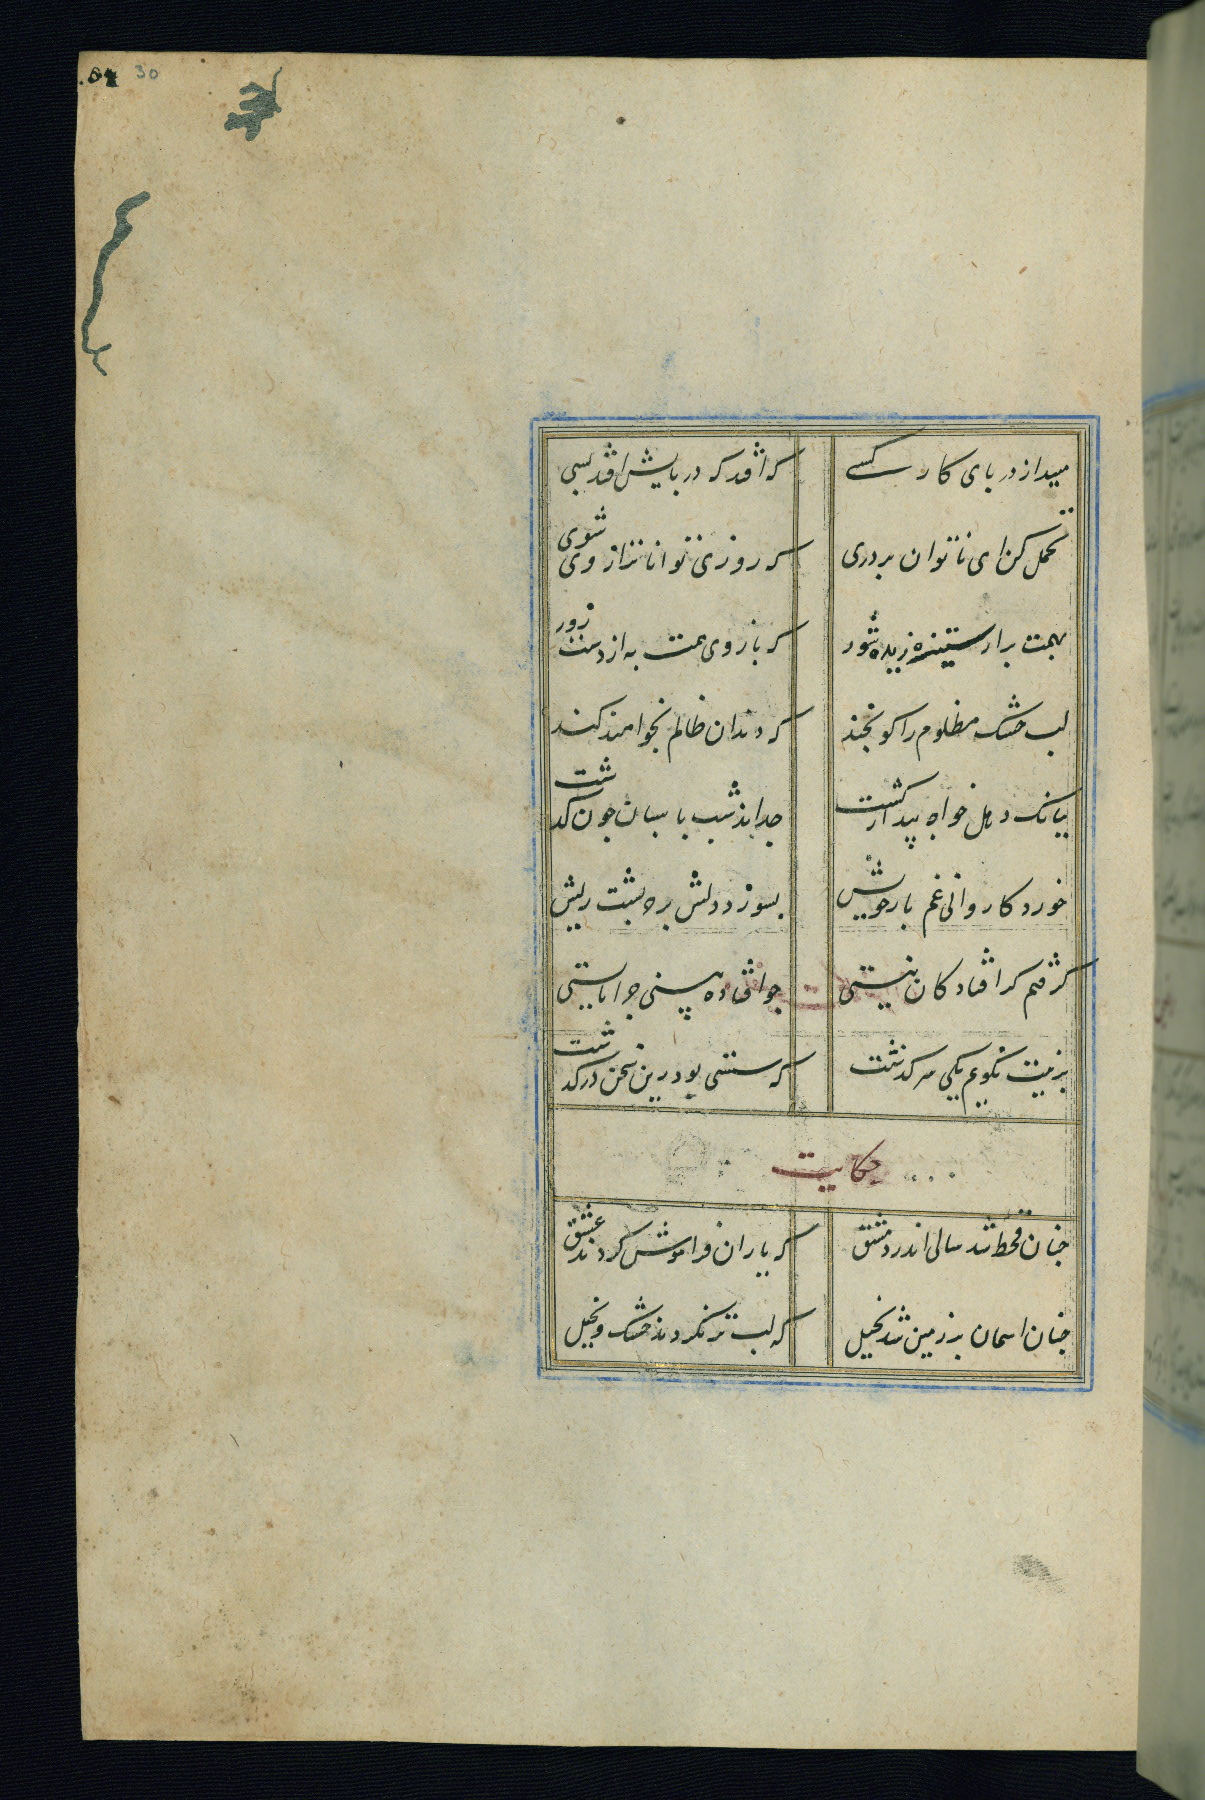 30
مینداز در پای کار کسی
که افتد که در پایش افتد بسی
تحمل کن ای ناتوان بر دری
که روزی توانا تر از وی شوی
بهمت برار ستیزه شور
که بازوی همت به از دست زور
لب خشک مظلوم را کو بخند
که دندان ظالم بخواهند کند
ببانک دهل خواجه بیدار کشت
جه داند شب پاسبان جون کدشت
خورد کاروانی غم بار خویش
بسوزد دلش بر پشت ریش
کرفتم کز افتادکان نیستی
جو افتاده بینی جرا بایستی
برینت بکویم یکی سر کذشت
که سستی بود زین سخن در کدشت
حکایت
جنان قحط شد سالی اندر دمشق
که یاران فراموش کردند عشق
جنان اسمان بر زمین شد بخیل
که لب تر نکردند خشک و نخیل